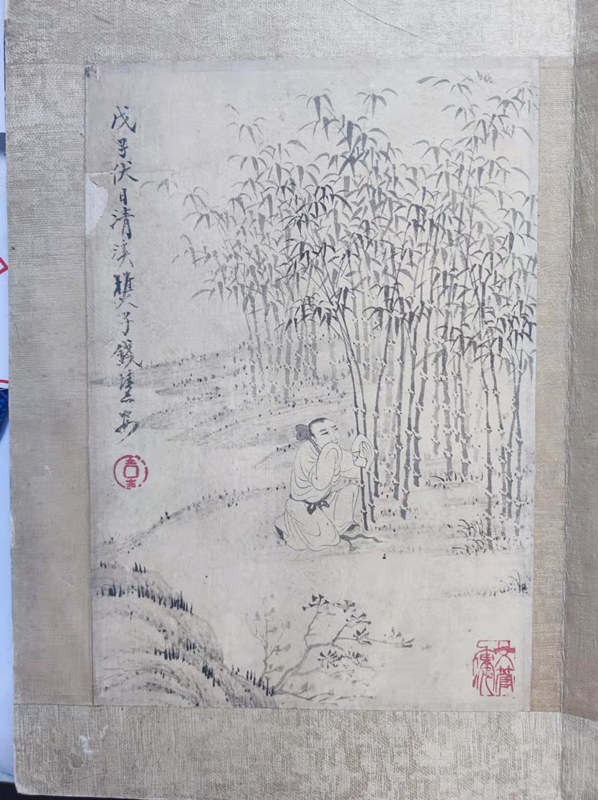 戊子伏日清溪樵子錢慧安